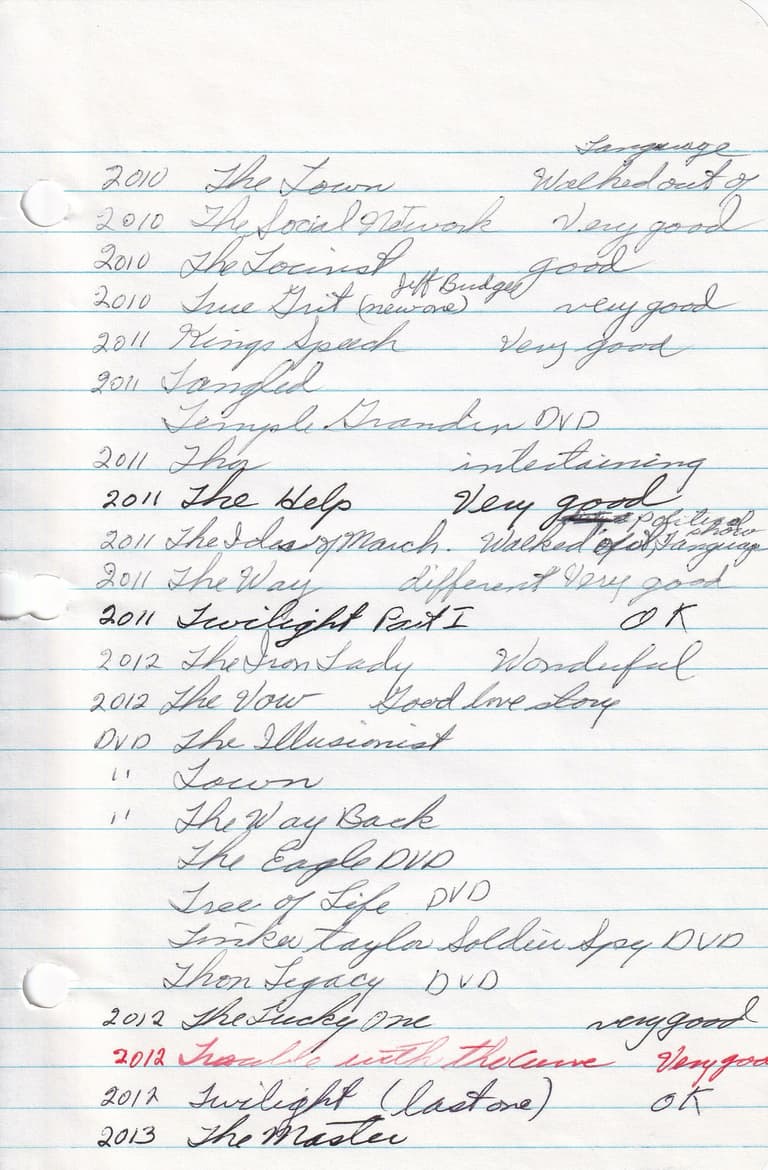 Language
2010 The Town Walked out of
2010 The Social Network Very good
2010 The Tourist good
Jeff Bridges
2010 True Grit (new one) very good
2011 Kings Speech Very good
2011 Tangled
Temple Grandin DVD
2011 Thor intertaining
2011 The Help Very good
political show
2011 The Ides of March. Walked Language
2011 The Way different Very good
2011 Twilight Part I OK
2012 The Iron Lady Wonderful
2012 The Vow Good love story
DVD The Illusionist
" Town
" The Way Back
The Eagle DVD
Tree of Life DVD
Tinker taylor Soldier Spy DVD
Legacy DVD
2012 The Lucky One very good
2012 Trouble with the curve Very goo
2012 Twilight (last one) OK
2013 The Master